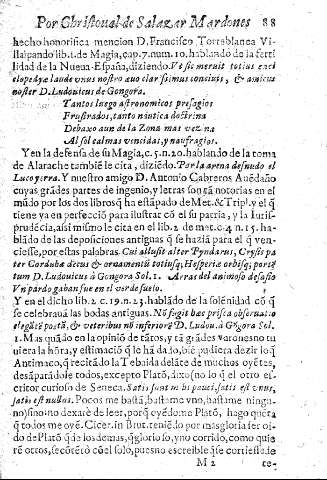 Por Christoual de Salazar Mardones 88
hecho honorifica mencion D. Francisco Torreblanca Vi-
llalpando lib. 1. de Magia, cap. 7. num. 10. hablando de la ferti
lidad de la Nueua-España, diziendo. Vt sic meruit totius enci
clopedyæ laude vnus nostro æuo clarissimus conciuis, & amicus
noster D. Ludouicus de Gongora.
Tantos luego astronomicos presagios
Frustrados, tanta nautica doctrina
Debaxo aun de la Zona mas vezina
Al sol calmas vencidas, y naufragios.
Y en la defensa de su Magia, c. 5. n. 20. hablando de la toma
de Alarache tambiẽ le cita, diziẽdo. Por la arena desnudo el
Luco yerra. Y nuestro amigo D. Antonio Cabreros Auẽdaño
cuyas grãdes partes de ingenio, y letras son ya notorias en el
mũdo por los dos librosq̃ ha estãpado de Met. & Tripl. y el q̃
tiene ya en perfecciõ para ilustrar cõ el su patria, y la Iuris-
prudẽcia, assi mismo le cita en el lib. 2. de met. c. 4 n. 15. ha-
blãdo de las deposiciones antiguas q̃ se haziã para el q̃ ven-
ciesse, por estas palabras. Cui allusit alter Pyndarus, Cryst pa
ter Cordubæ decus & ornamentũ totiusq; Hesperiæ orbisq; poet
tum D. Ludouicus à Gongora Sol. 1. Arras del animoso desafio
Vn pardo gaban fue en el verde suelo.
Y en el dicho lib. 2 c. 19. n. 23. hablãdo de la solẽnidad cõ q̃
se celebrauã las bodas antiguas. Nõ fugit hæc prisca obseruatio
elegãtẽ poetã, & veteribus nõ inferiorẽ D. Ludou. à Gõgora Sol.
1. Mas quãdo en la opiniõ de tãtos, y tã grãdes varones no tu
uiera la hõra, y estimaciõ q̃ le hã dado, biẽ pudiera dezir lo q̃
Antimaco, q̃ recitãdo la Tebaida delãte de muchos oyẽtes,
desãparãdole todos, excepto Platõ, dixo sino lo q̃ el otro es-
critor curioso de Seneca. Satis sunt mihi pauci, satis est vnus,
satis est nullus. Pocos me bastã, bastame vno, bastame ningu-
no) sino no dexarè de leer, porq̃ oyẽdome Platõ, hago quẽta
q̃ todos me oyẽ. Cicer. in Brut. teniẽdo por mas gloria ser oi-
do de Platõ q̃ de los demas, q̃ glorioso, y no corrido, como quie
rẽ otros, se cõtẽtò cõ el solo, pues no escreible q̃ se corriesse de
M 2 te-